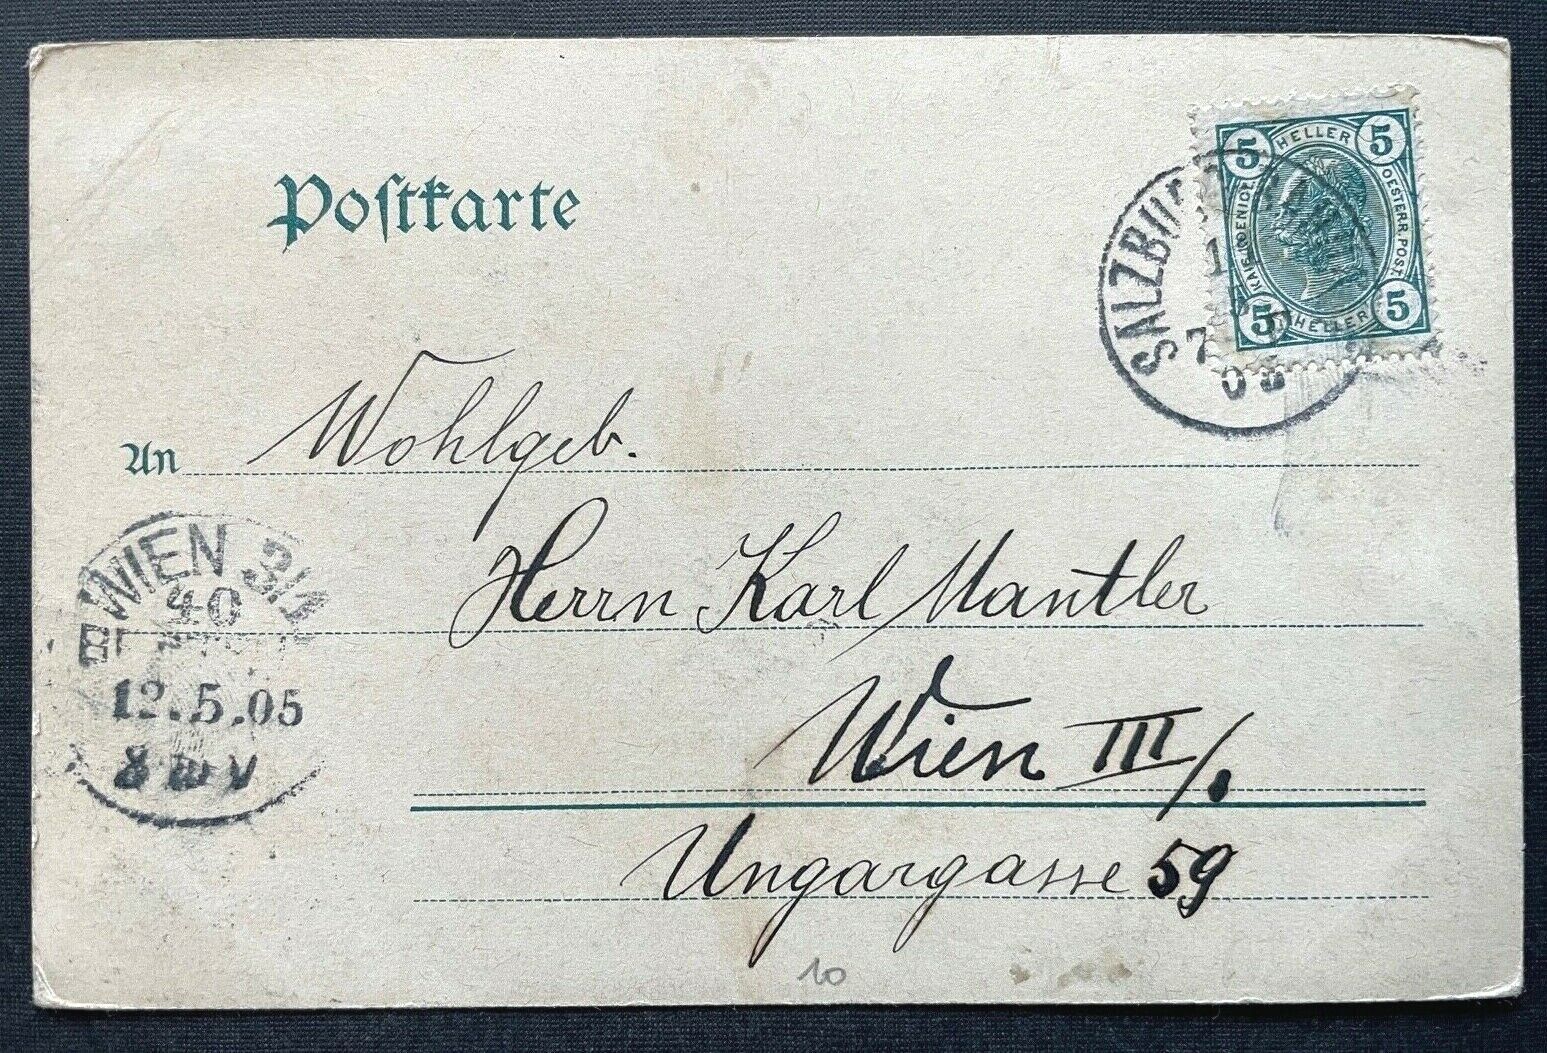 Postkarte
5 HELLER 5
KAIS. KOENIGL. OESTERR. POST
5 HELLER 5
SALZBURG
1
5
7
05
An Wohlgeb.
Herrn Karl Mantler
Wien III/.
Ungargasse 59
WIEN 3/1
40
12.5.05
8 V
10